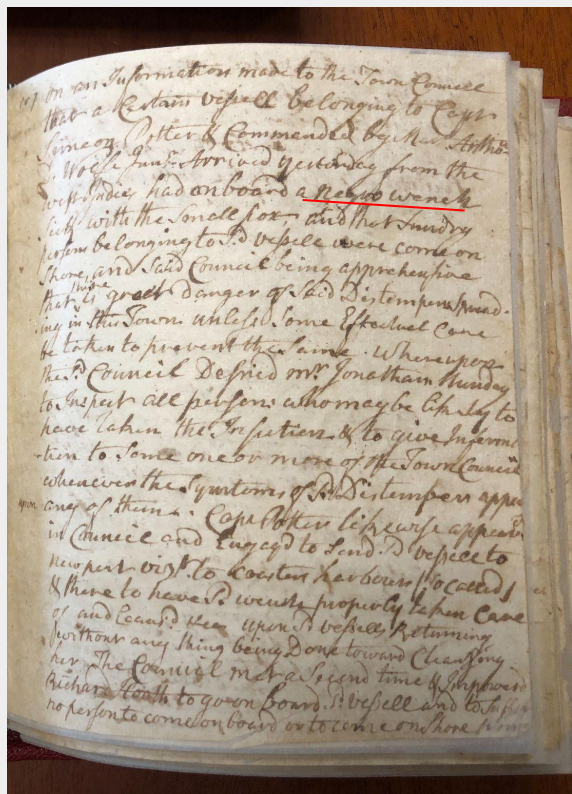 on an Information made to the Town Councell
that a Certain vessell belonging to Capt
Simeon Potter & Commanded by Mr. Antho
D Wolfe Junr. Arrived yesterday from the
west Indies had onboard a negro wench
Sick with the Small pox and that Sundry
persons belonging to Sd. vessell were come on
Shore, and Said Council being apprehensive
that there is great danger of Said Distemper Spread-
ing in this Town unless Some Effectual Care
be taken to prevent the Same. Whereupon
the Sd. Council Desired mr. Jonathan Munday
to Inspect all persons who may be likely to
have taken the Infection & to give Informa
tion to Some one or more of the Town Council
whenever the Symtoms of Sd. Distemper appear
upon any of them. Capt Potter likewise appeard
in Council and Engag'd to Send Sd. vessell to
newport vizt. to Coasters harbour (so called)
& there to have Sd. wench properly taken Care
of and Cleans'd &
upon Sd. vessells Returning
without any thing being Done toward Cleansing
her The Council met a Second time & Impowerd
Richard to go on board Sd. vessell and to Suffer
no person to come on board or to come on Shore from